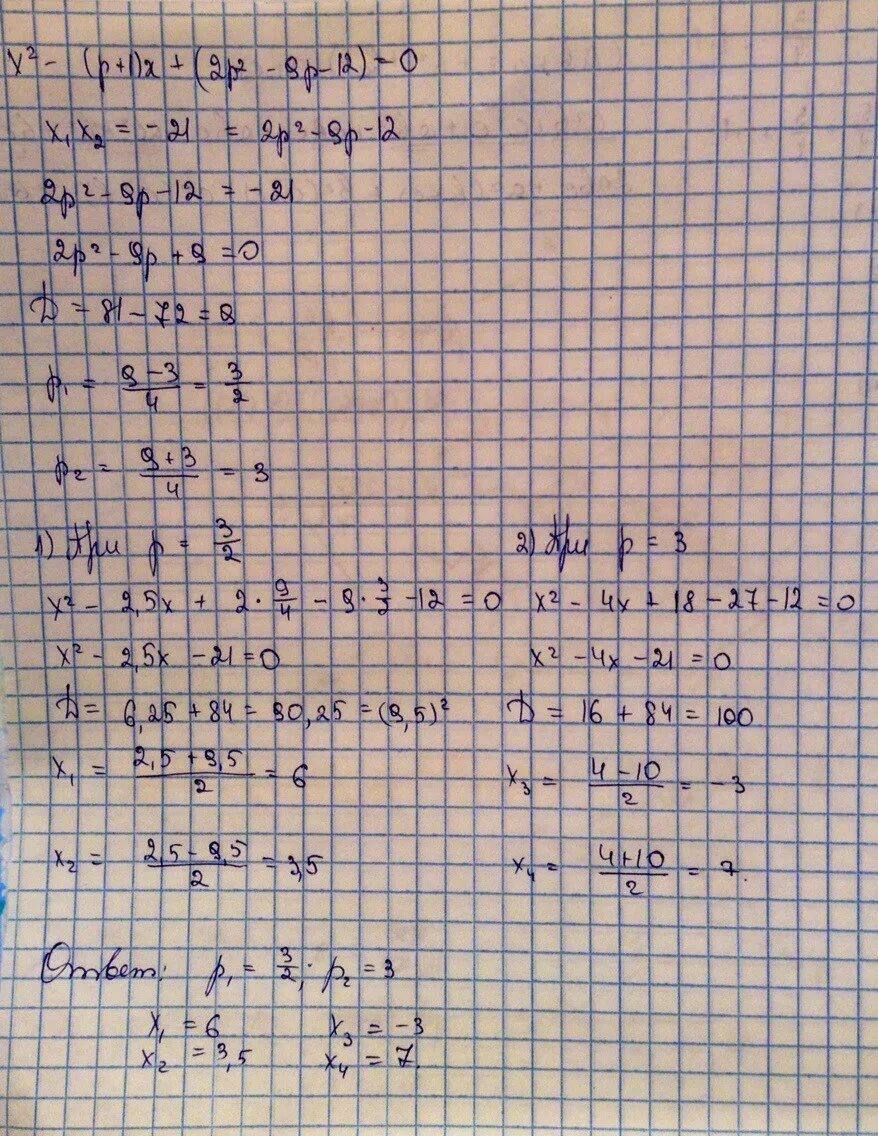 x² - (p+1)x + (2p² - 9p - 12) = 0
x₁x₂ = -21 = 2p² - 9p - 12
2p² - 9p - 12 = -21
2p² - 9p + 9 = 0
D = 81 - 72 = 9
p₁ = (9 - 3)/4 = 3/2
p₂ = (9 + 3)/4 = 3
1) При p = 3/2
x² - 2,5x + 2 · 9/4 - 9 · 3/2 - 12 = 0
x² - 2,5x - 21 = 0
D = 6,25 + 84 = 90,25 = (9,5)²
x₁ = (2,5 + 9,5)/2 = 6
x₂ = (2,5 - 9,5)/2 = 3,5
2) При p = 3
x² - 4x + 18 - 27 - 12 = 0
x² - 4x - 21 = 0
D = 16 + 84 = 100
x₃ = (4 - 10)/2 = -3
x₄ = (4 + 10)/2 = 7.
Ответ: p₁ = 3/2; p₂ = 3
x₁ = 6 x₃ = -3
x₂ = 3,5 x₄ = 7.